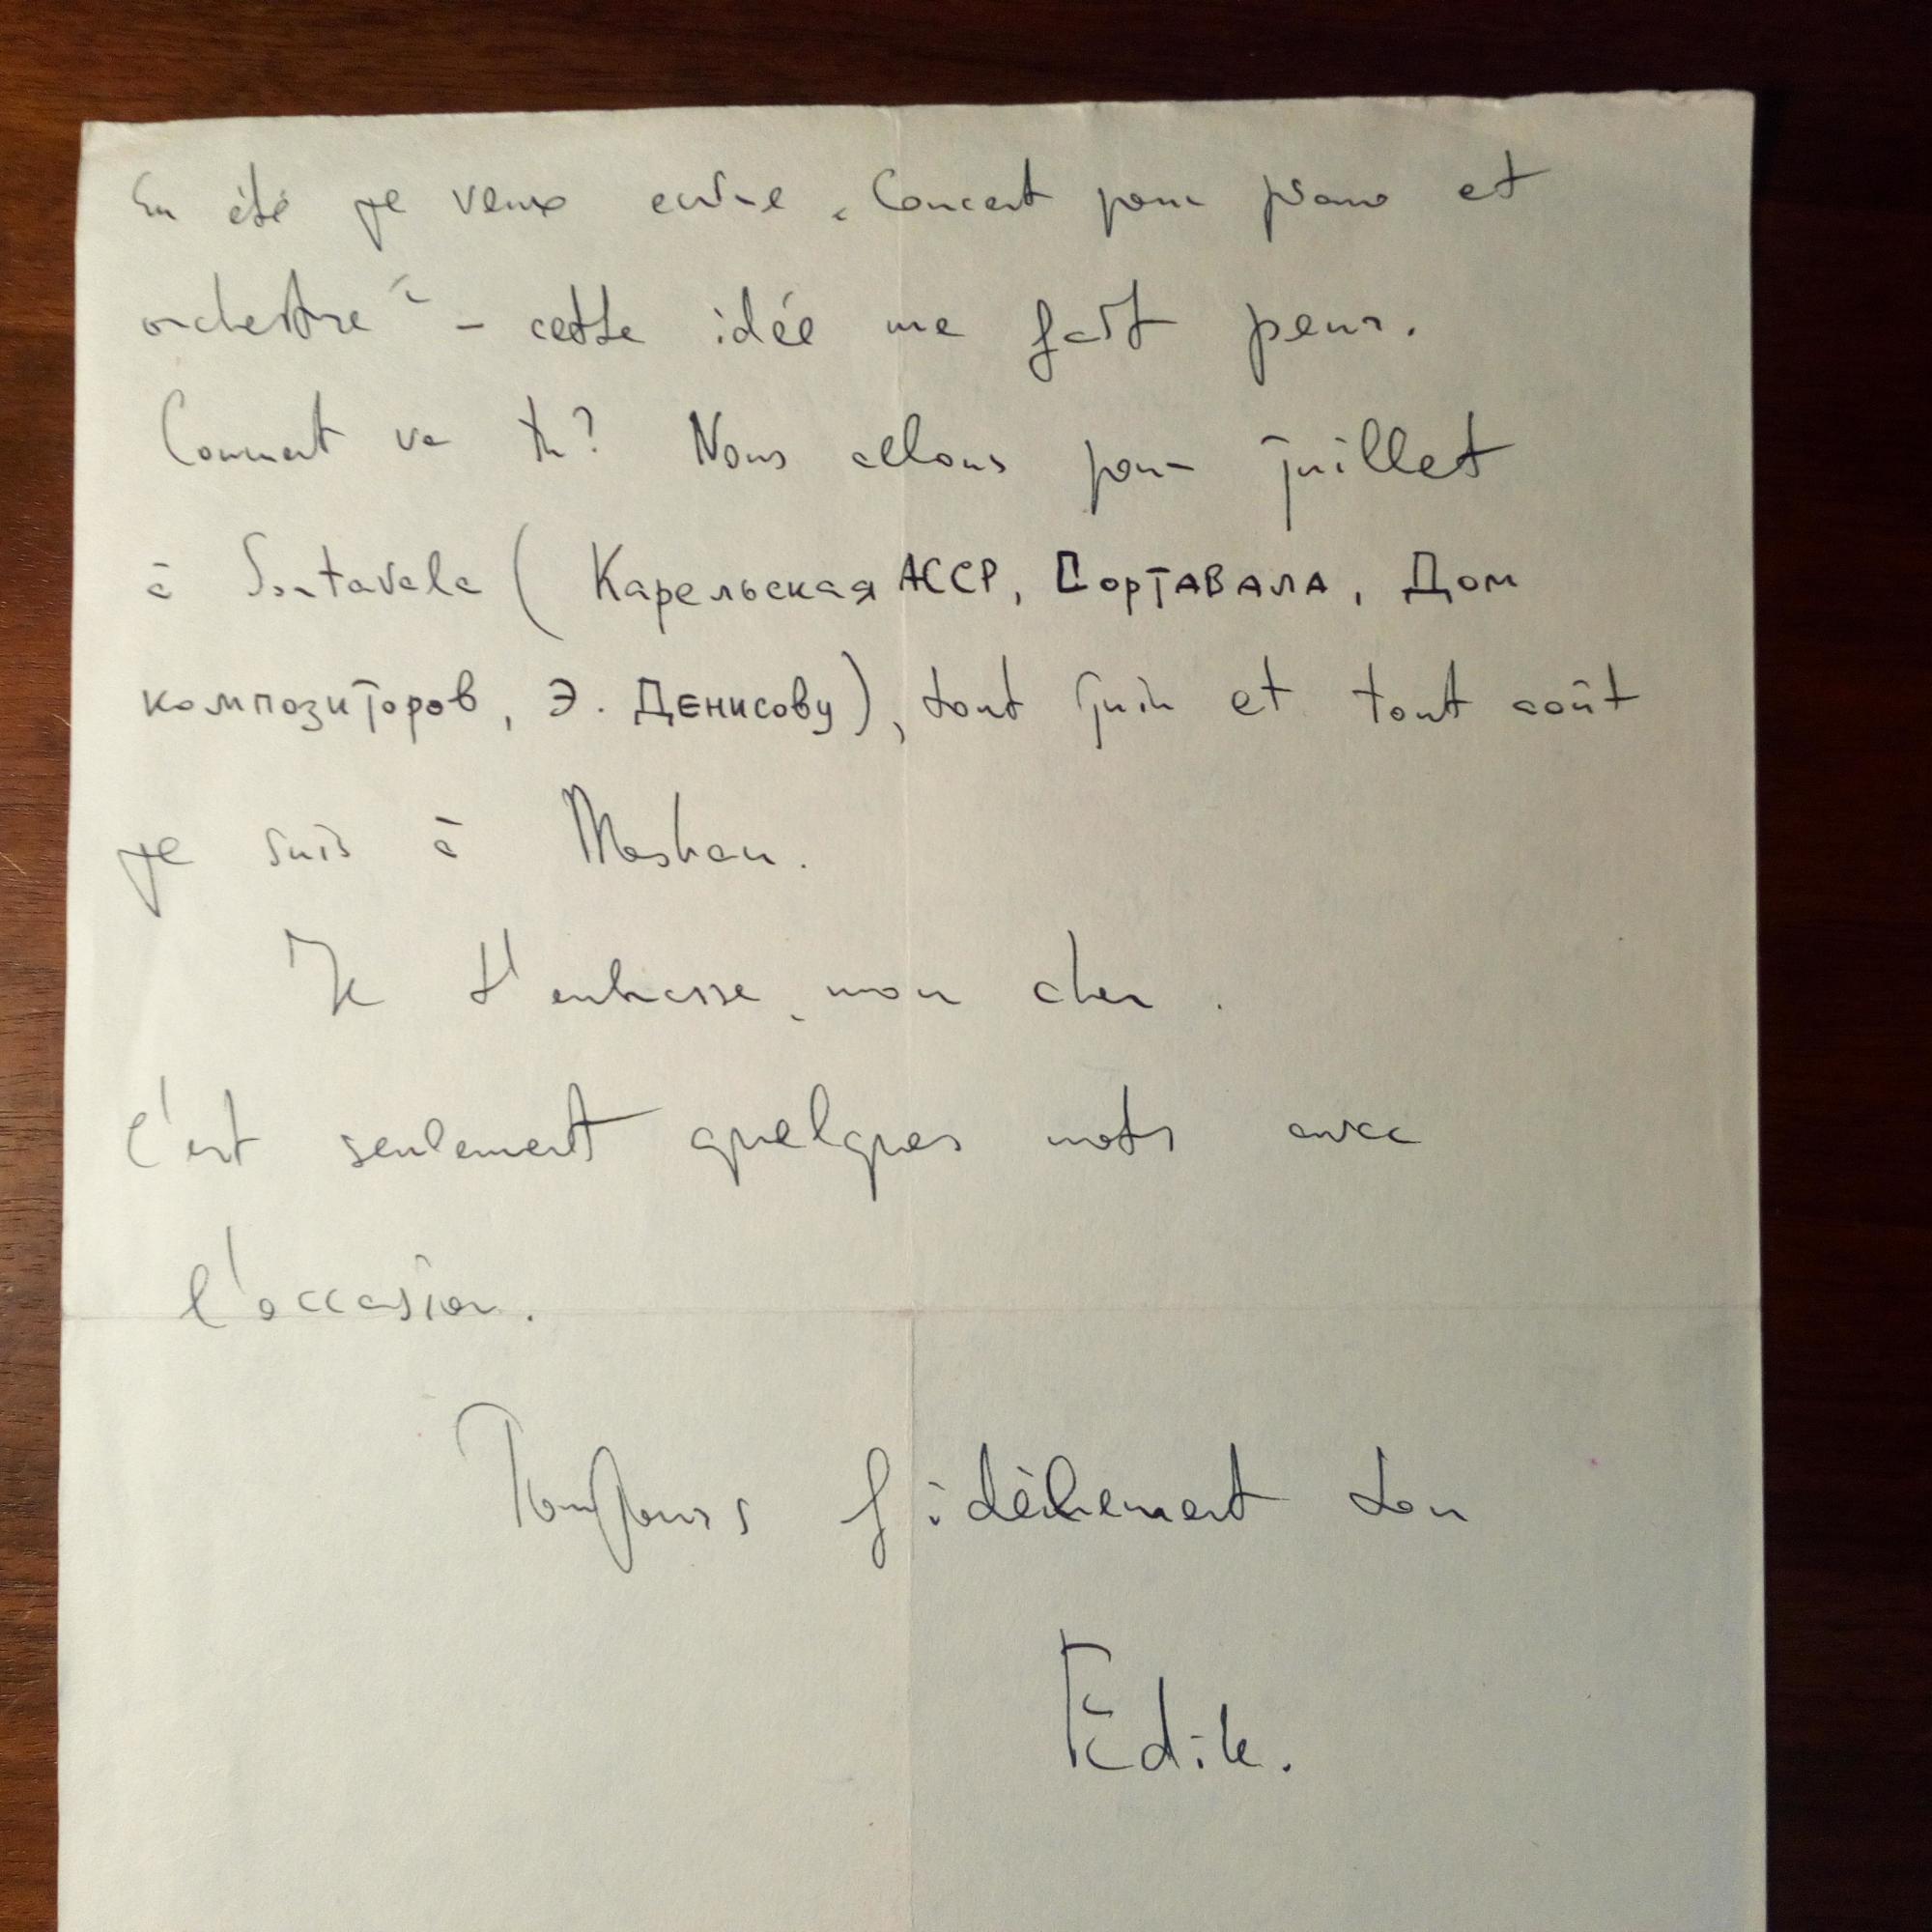 En été je veux ecrire „Concert pour piano et
orchestre“ – cette idée me fait peur.
Comment va tu? Nous allons pour juillet
à Sortavala (Карельская АССР, Сортавала, Дом
композиторов, Э. Денисову), tout juin et tout août
je suis à Moskou.
Je t'embrasse, mon cher.
C'est seulement quelques mots avec
l'occasion.
Toujours fidèlement ton
Edik.